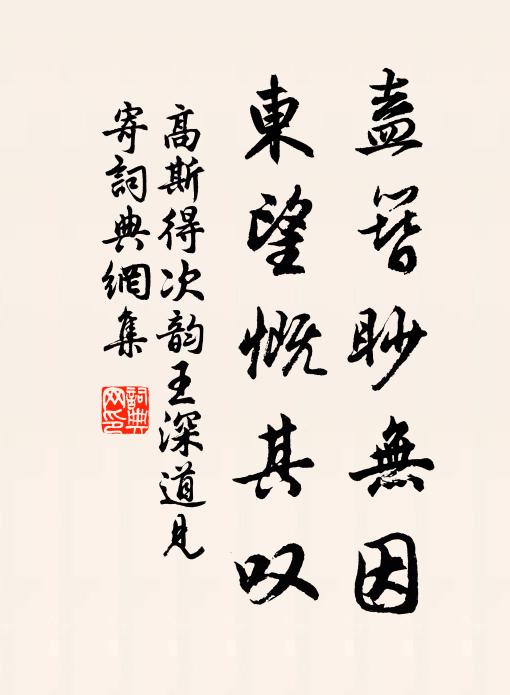 盍簪眇無因
東望慨其叹
高斯得次韵王深道見
寄詞典網集
詞典网印